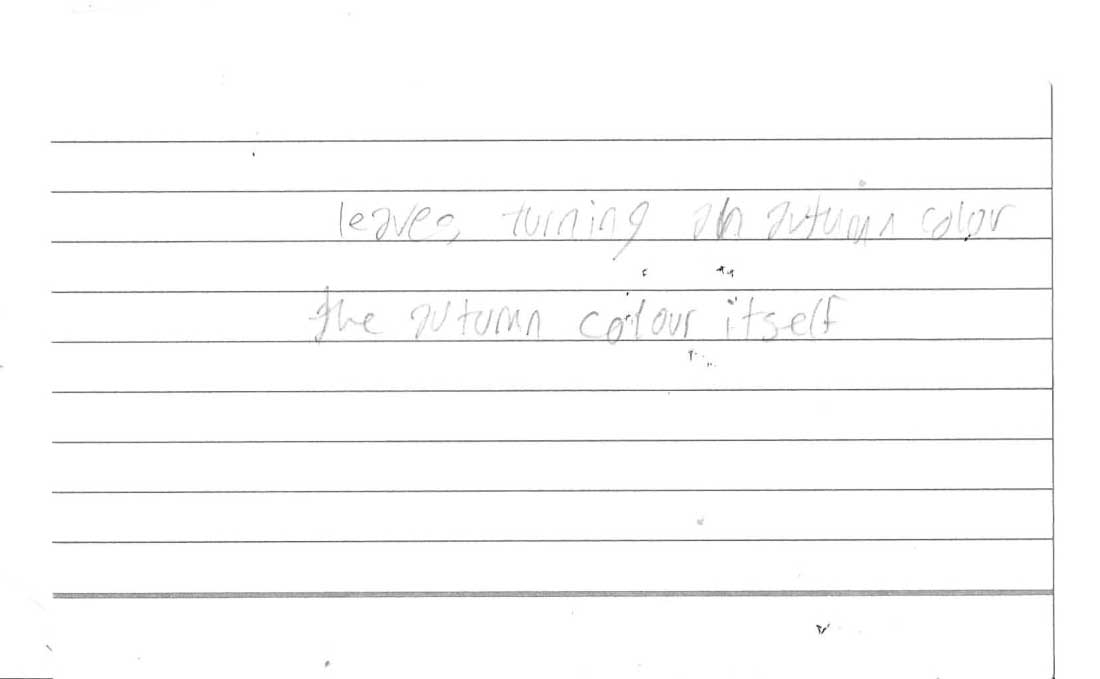 leaves turning an autumn color
the autumn colour itself